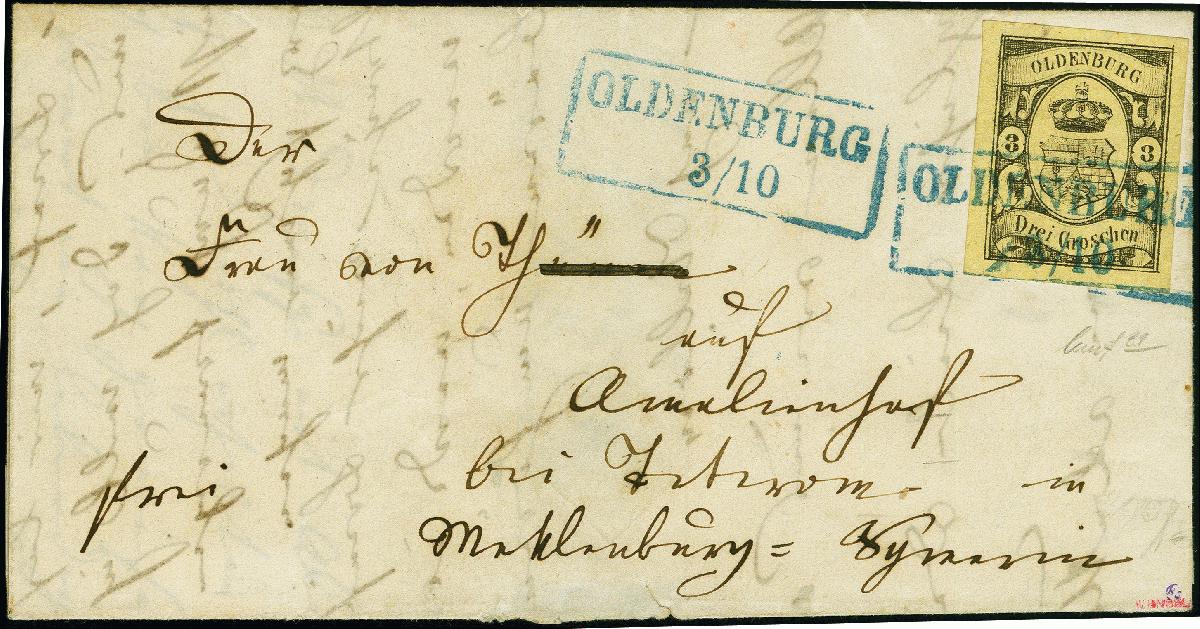 OLDENBURG
3/10
OLDENBURG
3 3
Drei Groschen
OLDENBURG
3/10
Der
Frau von Th
auf
Amalienhof
bei Teterow in
frei
Meklenburg=Schwerin